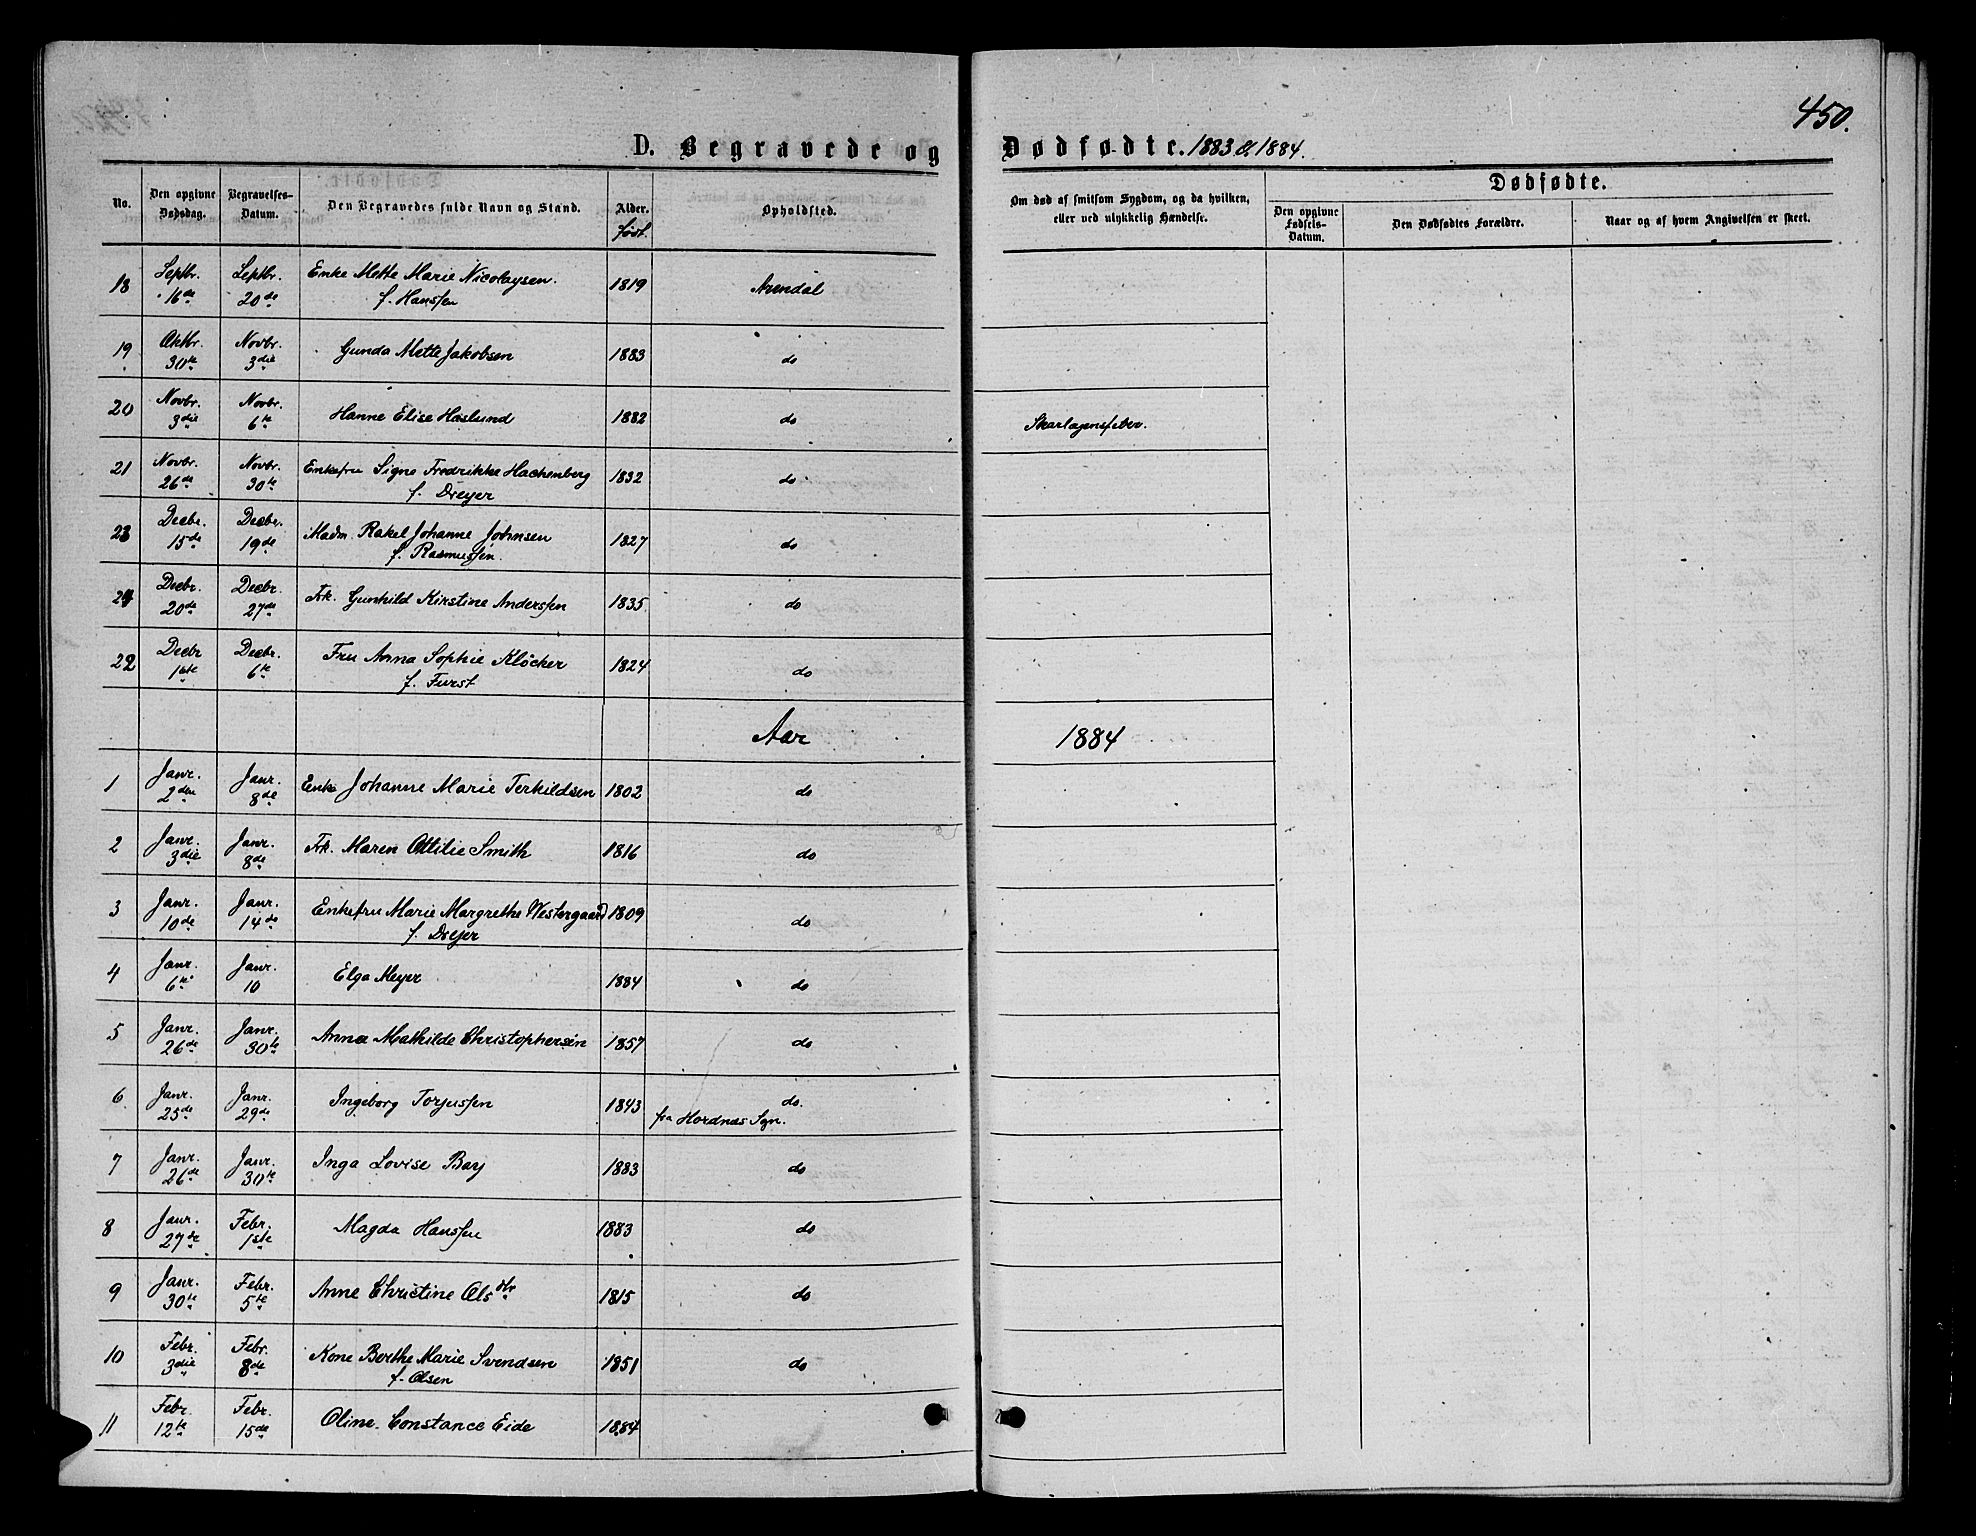 450.
D. Begravede og Dødfødte. 1883 & 1884.
No. Den opgivne Dødsdag. Begravelses-Datum. Den Begravedes fulde Navn og Stand. Alder. født. Opholdsted. Om død af smitsom Sygdom, og da hvilken, eller ved ulykkelig Hændelse. Dødfødte.
Den opgivne Fødsels-Datum. Den Dødfødtes Forældre. Naar og af hvem Angivelsen er skeet.
18 Septbr. 16de Septbr. 20de Enke Mette Marie Nicolaysen. f. Hanssen 1819 Arendal
19 Oktbr. 30te Novbr. 3die Gunda Mette Jakobsen 1883 do
20 Novbr. 3die Novbr. 6te Hanne Elise Haslund 1882 do Skarlagensfeber.
21 Novbr. 26de Novbr. 30te Enkefru Signe Fredrikke Hachenberg f. Dreyer 1832 do
23 Decbr. 15de Decbr. 19de Madm. Rakel Johanne Johnsen f. Rasmussen. 1827 do
24 Decbr. 20de Decbr. 27de Frk. Gunhild Kirstine Anderssen 1835 do
22 Decbr 1ste Decbr. 6te Fru Anna Sophie Kløcker f. Furst 1824 do
Aar 1884
1 Janr. 2den Janr. 8de Enke Johanne Marie Terkildsen 1802 do
2 Janr. 3die Janr. 8de Frk. Maren Ottilie Smith 1816 do
3 Janr. 10de Janr. 14de Enkefru Marie Margrethe Westergaard f. Dreyer 1809 do
4 Janr. 6te Janr. 10 Elga Meyer 1884 do
5 Janr. 26de Janr. 30te Anna Mathilde Christophersen 1857 do
6 Janr. 25de Janr. 29de Ingeborg Torjussen 1843 do. fra Hordnæs Sgn.
7 Janr. 26de Janr. 30te Inga Lovise Bay 1883 do
8 Janr. 27de Febr. 1ste Magda Hanssen 1883 do
9 Janr. 30te Febr. 5te Anne Christine Olsdtr 1815 do
10 Febr. 3die Febr. 8de Kone Berthe Marie Svendsen f. Olsen 1851 do
11 Febr. 12te Febr. 15de Oline Constance Eide 1884